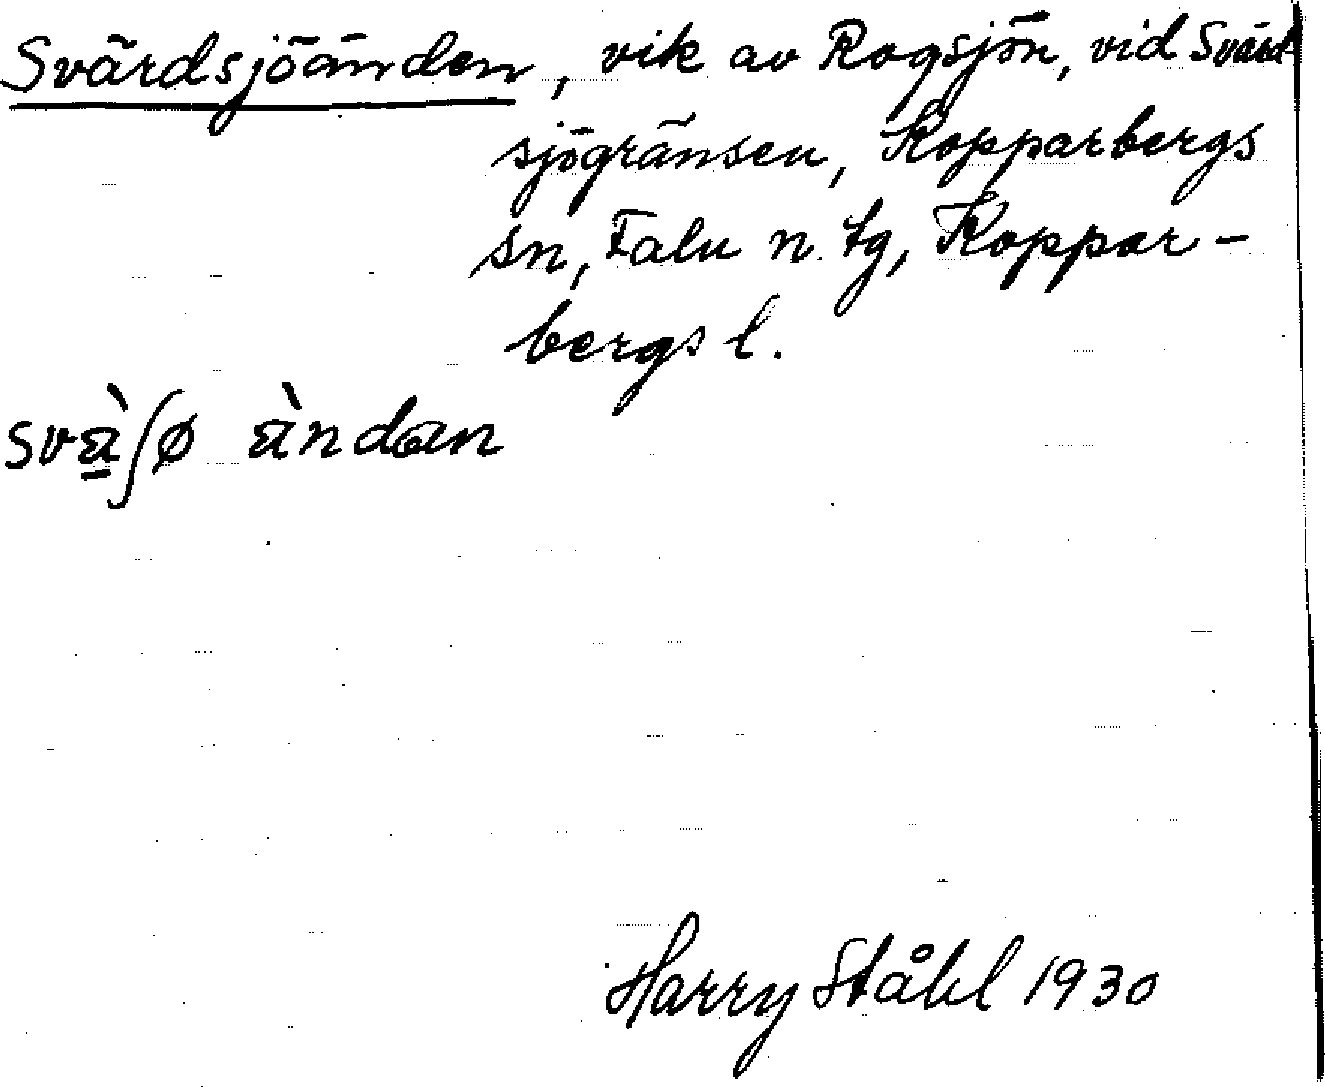 Svärdsjöänden, vik av Rogsjön, vid Svärd
sjögränsen, Kopparbergs
sn, Falu n. tg, Koppar-
bergs l.
svä̀ʃø ä̀ndan
Harry Ståhl 1930